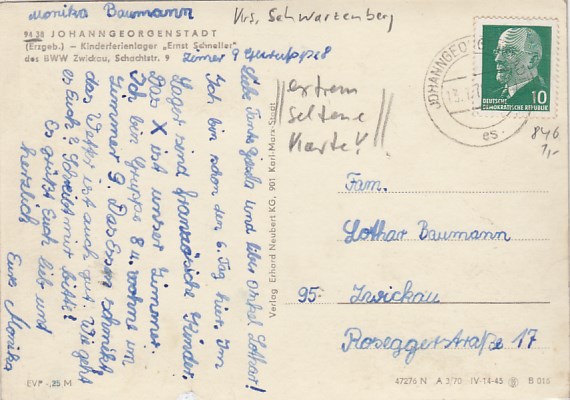 Monika Baumann
Krs. Schwarzenberg
94 38 JOHANNGEORGENSTADT
(Erzgeb.) – Kinderferienlager „Ernst Schneller"
des BWW Zwickau, Schachtstr. 9
Zimer 9 Gruruppe 8
Liebe Tante Gisela und liber Onkel Lothar!
Ich bin schon den 6. Tag hier. Im
Lager sind französische Kinder.
Das X ist unser Zimmer.
Ich bin Gruppe 8 u. wohne im
Zimmer 9. Das Essen schmekt
das Wetter ist auch gut. Wie geht
es Euch? Schreibt mir bitte!
Es grüßt Euch lib und
herzlich
Eure Monika
EVP -,25 M
Verlag Erhard Neubert KG, 901 Karl-Marx-Stadt
extrem
seltene
Karte!
JOHANNGEO
13.
DEUTSCHE
DEMOKRATISCHE REPUBLIK
10
es.
846
1,-
Fam.
Lothar Baumann
95 Zwickau
Roseggerstraße 17
47276 N A 3/70 IV-14-45 B 016